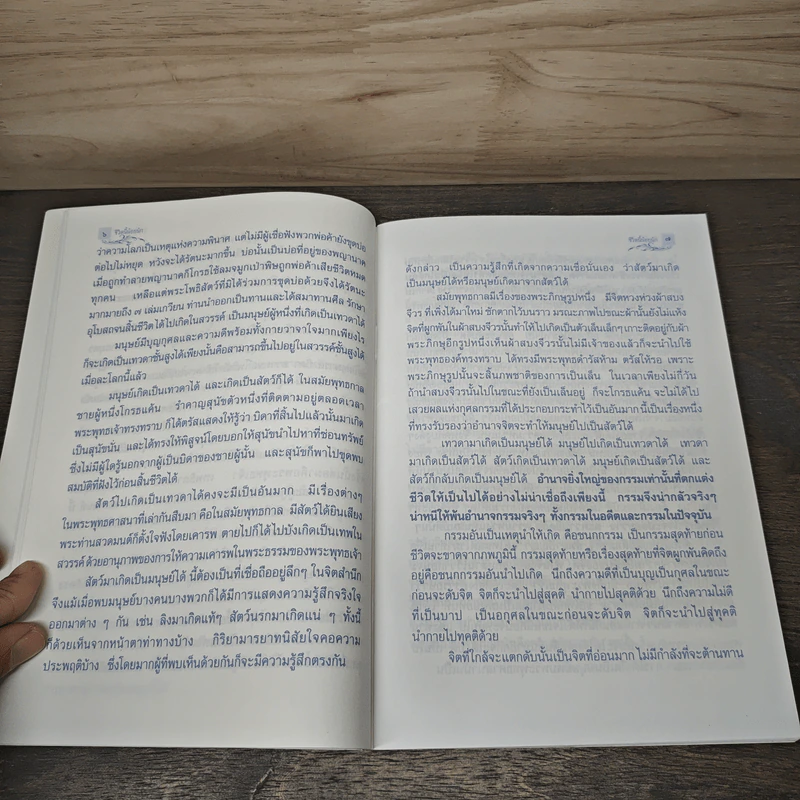 ว่าความโลภเป็นเหตุแห่งความพินาศ แต่ไม่มีผู้เชื่อฟังพวกพ่อค้ายังขุดบ่อ
ต่อไปไม่หยุด หวังจะได้รัตนะมากขึ้น บ่อนั้นเป็นบ่อที่อยู่ของพญานาค
เมื่อถูกทำลายพญานาคก็โกรธใช้ลมจมูกเป่าพิษถูกพ่อค้าเสียชีวิตหมด
ทุกคน เหลือแต่พระโพธิสัตว์ที่มิได้ร่วมการขุดบ่อด้วยจึงได้รัตนะ
มากมายถึง ๗ เล่มเกวียน ท่านนำออกเป็นทานและได้สมาทานศีล รักษา
อุโบสถจนสิ้นชีวิตได้ไปเกิดในสวรรค์ เป็นมนุษย์ผู้หนึ่งที่เกิดเทวดาได้
มนุษย์มีบุญกุศลและความดีพร้อมทั้งกายวาจาใจมากเพียงไร
ก็จะเกิดเป็นเทวดาชั้นสูงได้เพียงนั้นคือสามารถขึ้นไปอยู่ในสวรรค์ชั้นสูงได้
เมื่อละโลกนี้แล้ว
มนุษย์เกิดเป็นเทวดาได้ และเกิดเป็นสัตว์ก็ได้ ในสมัยพุทธกาล
ชายผู้หนึ่งโกรธแค้น รำคาญสุนัขตัวหนึ่งที่ติดตามอยู่ตลอดเวลา
พระพุทธเจ้าทรงทราบ ก็ได้ตรัสแสดงให้รู้ว่า บิดาที่สิ้นไปแล้วนั้นมาเกิด
เป็นสุนัขนั้น และได้ทรงให้พิสูจน์โดยบอกให้สุนัขนำไปหาที่ซ่อนทรัพย์
ซึ่งไม่มีผู้ใดรู้นอกจากผู้เป็นบิดาของชายผู้นั้น และสุนัขก็พาไปขุดพบ
สมบัติที่ฝังไว้ก่อนสิ้นชีวิตได้
สัตว์ไปเกิดเป็นเทวดาได้คงจะมีเป็นอันมาก มีเรื่องต่างๆ
ในพระพุทธศาสนาที่เล่ากันสืบมา คือในสมัยพุทธกาล มีสัตว์ได้ยินเสียง
พระท่านสวดมนต์ก็ตั้งใจฟังโดยเคารพ ตายไปก็ได้ไปบังเกิดเป็นเทพใน
สวรรค์ ด้วยอานุภาพของการให้ความเคารพในพระธรรมของพระพุทธเจ้า
สัตว์มาเกิดเป็นมนุษย์ได้ นี้ต้องเป็นที่เชื่อถืออยู่ลึกๆ ในจิตสำนึก
จึงแม้เมื่อพบมนุษย์บางคนบางพวกก็ได้มีการแสดงความรู้สึกจริงใจ
ออกมาต่าง ๆ กัน เช่น ลิงมาเกิดแท้ๆ สัตว์นรกมาเกิดแน่ ๆ ทั้งนี้
ก็ด้วยเห็นจากหน้าตาท่าทางบ้าง กิริยามารยาทนิสัยใจคอความ
ประพฤติบ้าง ซึ่งโดยมากผู้ที่พบเห็นด้วยกันก็จะมีความรู้สึกตรงกัน
ดังกล่าว เป็นความรู้สึกที่เกิดจากความเชื่อนั่นเอง ว่าสัตว์มาเกิด
เป็นมนุษย์ได้หรือมนุษย์เกิดมาจากสัตว์ได้
สมัยพุทธกาลมีเรื่องของพระภิกษุรูปหนึ่ง มีจิตหวงห่วงผ้าสบง
จีวร ที่เพิ่งได้มาใหม่ ซักตากไว้บนราว มรณะภาพไปขณะผ้านั้นยังไม่แห้ง
จิตที่ผูกพันในผ้าสบงจีวรนั้นทำให้ไปเกิดเป็นตัวเล็นเล็กๆ เกาะติดอยู่กับผ้า
พระภิกษุอีกรูปหนึ่งเห็นผ้าสบงจีวรนั้นไม่มีเจ้าของแล้วก็จะนำไปใช้
พระพุทธองค์ทรงทราบ ได้ทรงมีพระพุทธดำรัสห้าม ตรัสให้รอ เพราะ
พระภิกษุรูปนั้นจะสิ้นภพชาติของการเป็นเล็น ในเวลาเพียงไม่กี่วัน
ถ้านำสบงจีวรนั้นไปในขณะที่ยังเป็นเล็นอยู่ ก็จะโกรธแค้น จะไม่ได้ไป
เสวยผลแห่งกุศลกรรมที่ได้ประกอบกระทำไว้เป็นอันมาก นี้เป็นเรื่องหนึ่ง
ที่ทรงรับรองว่าอำนาจจิตจะทำให้มนุษย์ไปเป็นสัตว์ได้
เทวดามาเกิดเป็นมนุษย์ได้ มนุษย์ไปเกิดเป็นเทวดาได้ เทวดา
มาเกิดเป็นสัตว์ได้ สัตว์เกิดเป็นเทวดาได้ มนุษย์เกิดเป็นสัตว์ได้ และ
สัตว์ก็กลับเกิดเป็นมนุษย์ได้ อำนาจยิ่งใหญ่ของกรรมเท่านั้นที่ตกแต่ง
ชีวิตให้เป็นไปได้อย่างไม่น่าเชื่อถึงเพียงนี้ กรรมจึงน่ากลัวจริงๆ
น่าหนีให้พ้นอำนาจกรรมจริงๆ ทั้งกรรมในอดีตและกรรมในปัจจุบัน
กรรมอันเป็นเหตุนำให้เกิด คือชนกกรรม เป็นกรรมสุดท้ายก่อน
ชีวิตจะขาดจากภพภูมินี้ กรรมสุดท้ายหรือเรื่องสุดท้ายที่จิตผูกพันคิดถึง
อยู่คือชนกกรรมอันนำไปเกิด นึกถึงความดีที่เป็นบุญเป็นกุศลในขณะ
ก่อนจะดับจิต จิตก็จะนำไปสู่สุคติ นำกายไปสุคติด้วย นึกถึงความไม่ดี
ที่เป็นบาป เป็นอกุศลในขณะก่อนจะดับจิต จิตก็จะนำไปสู่ทุคติ
นำกายไปทุคติด้วย
จิตที่ใกล้จะแตกดับนั้นเป็นจิตที่อ่อนมาก ไม่มีกำลังที่จะต้านทาน